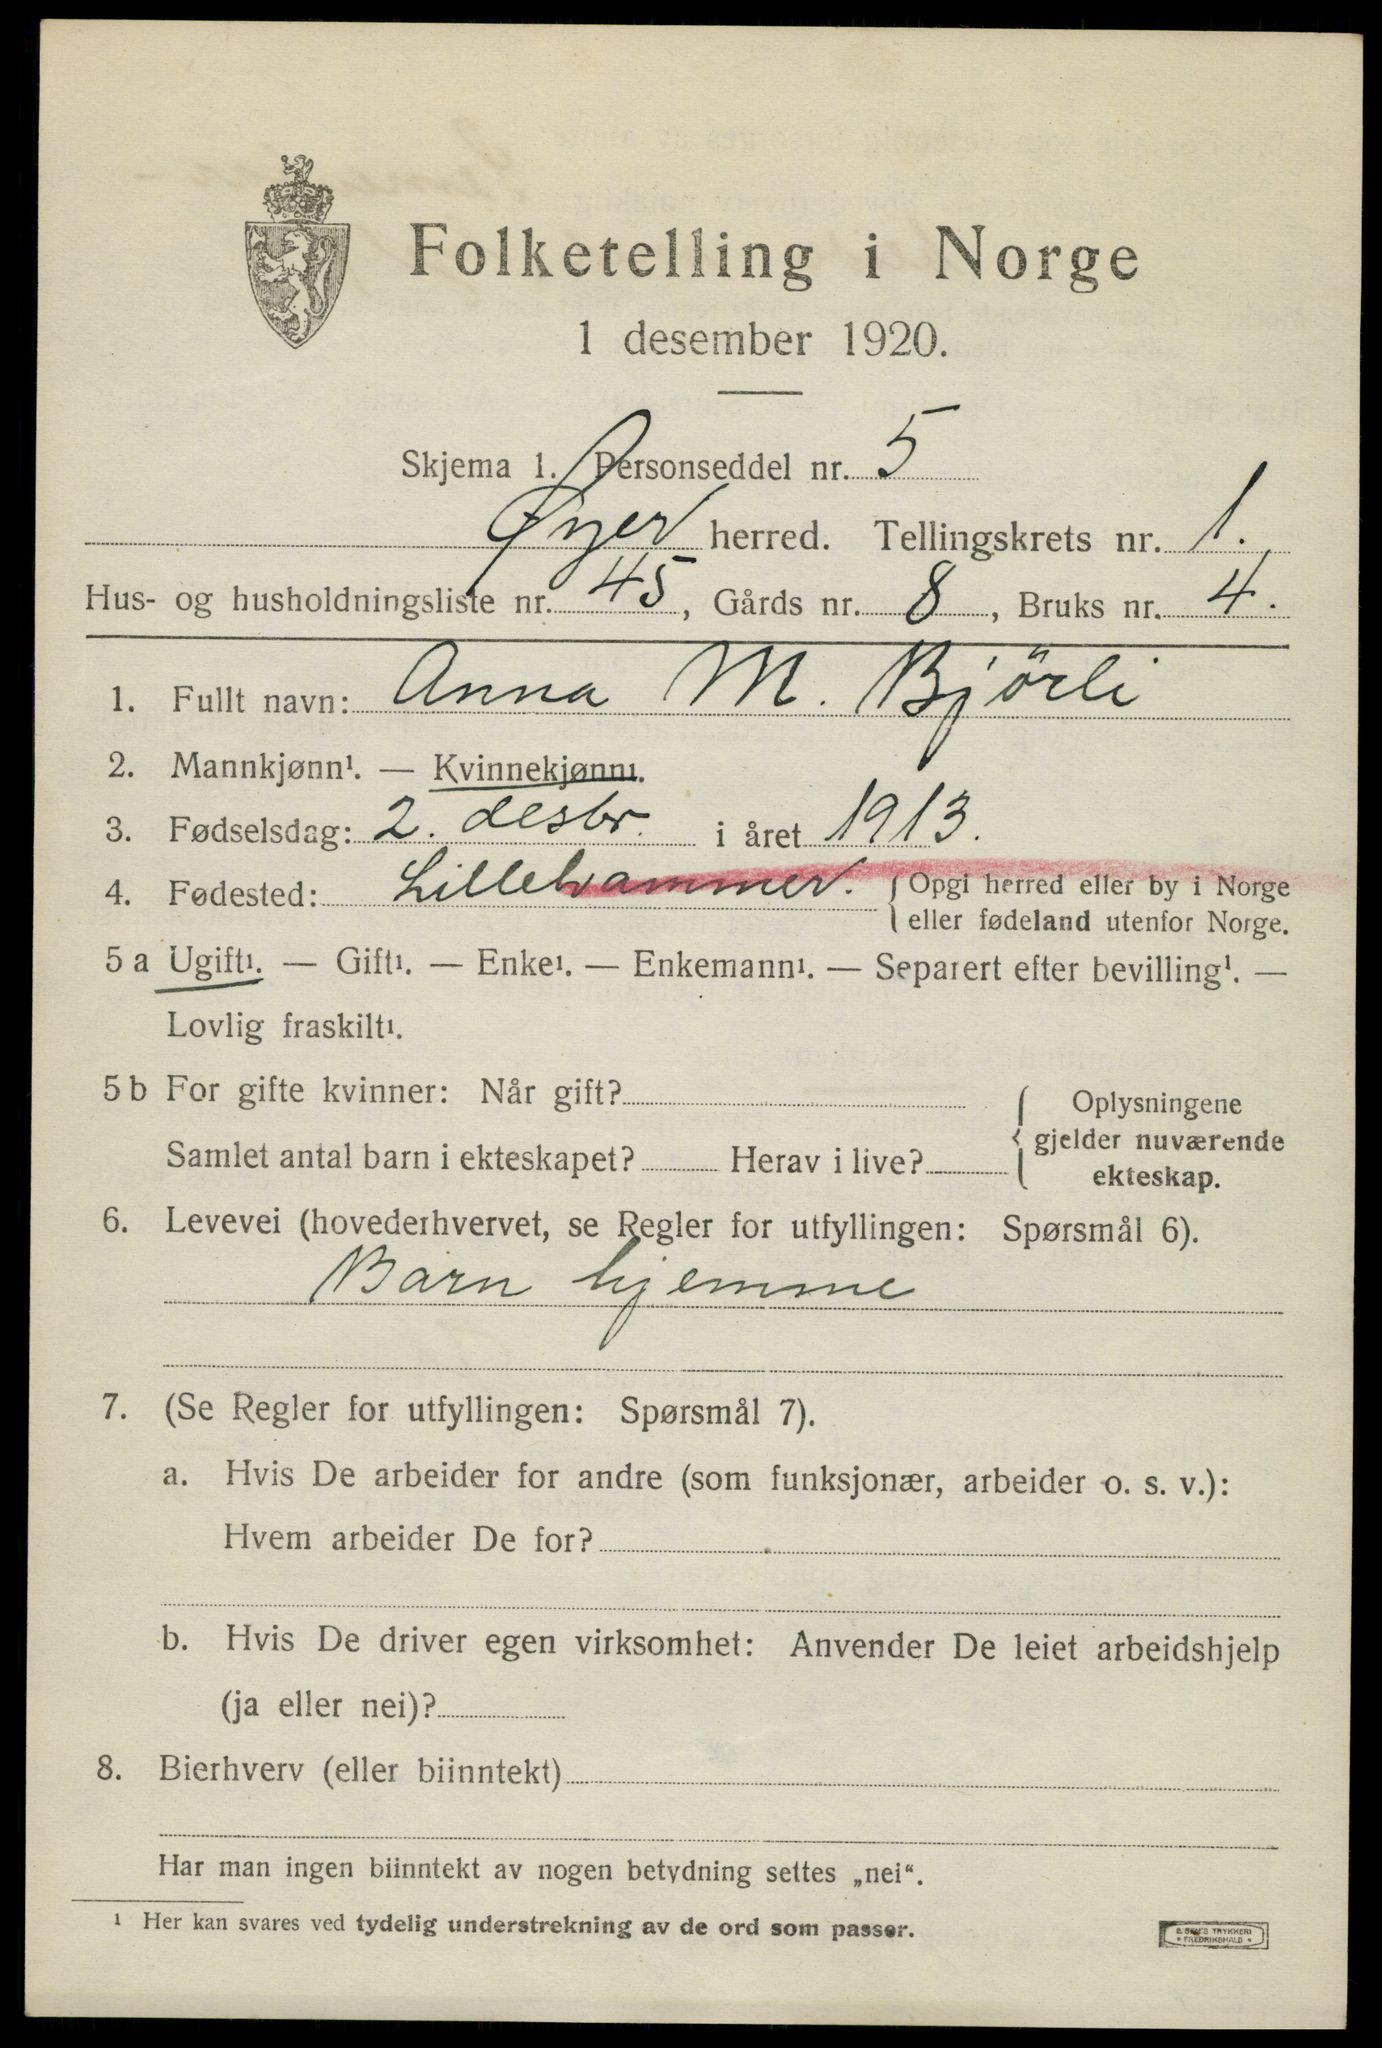 Folketelling i Norge
1 desember 1920.
Skjema 1. Personseddel nr. 5
Øyer herred. Tellingskrets nr. 1.
Hus- og husholdningsliste nr. 45, Gårds nr. 8, Bruks nr. 4.
1. Fullt navn: Anna M. Bjørli
2. Mannkjønn¹. — Kvinnekjønn¹.
3. Fødselsdag: 2. desbr. i året 1913.
4. Fødested: Lillehammer. {Opgi herred eller by i Norge
eller fødeland utenfor Norge.
5 a Ugift¹. — Gift¹. — Enke¹. — Enkemann¹. — Separert efter bevilling¹. —
Lovlig fraskilt¹.
5 b For gifte kvinner: Når gift?
Samlet antal barn i ekteskapet? Herav i live?
Oplysningene
gjelder nuværende
ekteskap.
6. Levevei (hovederhvervet, se Regler for utfyllingen: Spørsmål 6).
Barn hjemme
7. (Se Regler for utfyllingen: Spørsmål 7).
a. Hvis De arbeider for andre (som funksjonær, arbeider o. s. v.):
Hvem arbeider De for?
b. Hvis De driver egen virksomhet: Anvender De leiet arbeidshjelp
(ja eller nei)?
8. Bierhverv (eller biinntekt)
Har man ingen biinntekt av nogen betydning settes „nei“.
¹ Her kan svares ved tydelig understrekning av de ord som passer.
TRYKKERI
FREDRIKSHALD